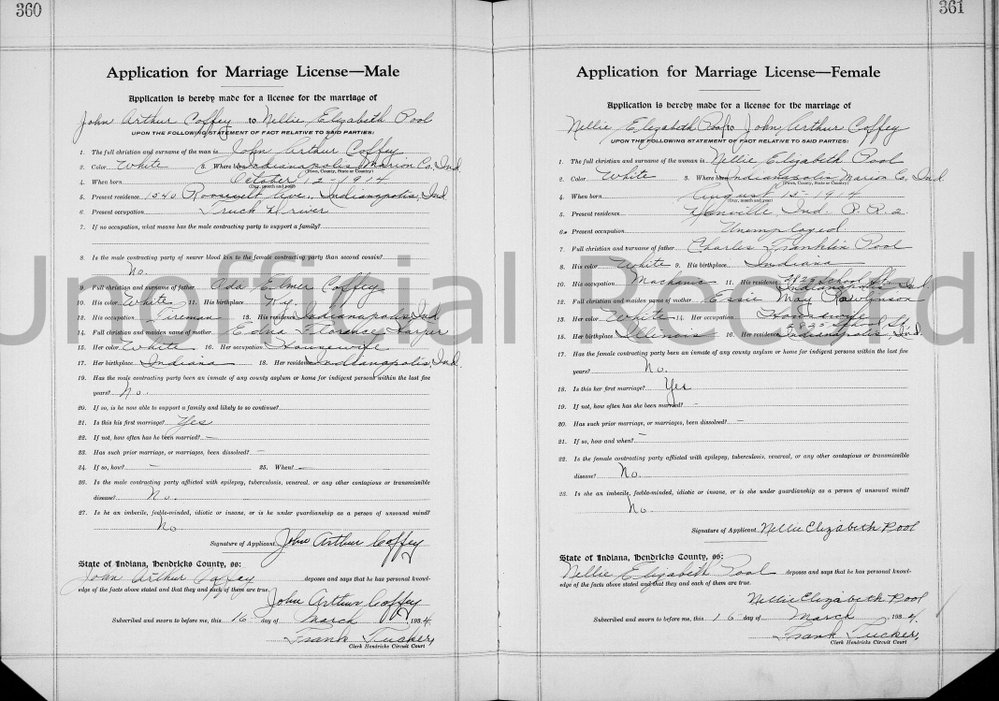 360
Application for Marriage License—Male
Application is hereby made for a license for the marriage of
John Arthur Coffey to Nellie Elizabeth Pool
UPON THE FOLLOWING STATEMENT OF FACT RELATIVE TO SAID PARTIES:
1. The full christian and surname of the man is John Arthur Coffey
2. Color White 3. Where born Indianapolis Marion Co. Ind
(Town, County, State or Country)
4. When born October 12-1914
(Day, month and year)
5. Present residence 1540 Roosevelt Ave., Indianapolis, Ind
6. Present occupation Truck Driver
7. If no occupation, what means has the male contracting party to support a family?
8. Is the male contracting party of nearer blood kin to the female contracting party than second cousin?
No.
9. Full christian and surname of father Ada Elmer Coffey
10. His color White 11. His birthplace Ky.
12. His occupation Fireman 13. His residence Indianapolis, Ind
14. Full christian and maiden name of mother Edna Florence Harper
15. Her color White 16. Her occupation Housewife
17. Her birthplace Indiana 18. Her residence Indianapolis, Ind.
19. Has the male contracting party been an inmate of any county asylum or home for indigent persons within the last five
years? No.
20. If so, is he now able to support a family and likely to so continue?
21. Is this his first marriage? Yes
22. If not, how often has he been married? —
23. Has such prior marriage, or marriages, been dissolved? —
24. If so, how? — 25. When? —
26. Is the male contracting party afflicted with epilepsy, tuberculosis, venereal, or any other contagious or transmissible
disease? No.
27. Is he an imbecile, feeble-minded, idiotic or insane, or is he under guardianship as a person of unsound mind?
No
Signature of Applicant John Arthur Coffey
State of Indiana, Hendricks County, ss:
John Arthur Coffey deposes and says that he has personal knowl-
edge of the facts above stated and that they and each of them are true.
John Arthur Coffey
Subscribed and sworn to before me, this 16 day of March 1934.
Frank Tucker,
Clerk Hendricks Circuit Court
361
Application for Marriage License—Female
Application is hereby made for a license for the marriage of
Nellie Elizabeth Pool to John Arthur Coffey
UPON THE FOLLOWING STATEMENT OF FACT RELATIVE TO SAID PARTIES:
1. The full christian and surname of the woman is Nellie Elizabeth Pool
2. Color White 3. Where born Indianapolis Marion Co. Ind
(Town, County, State or Country)
4. When born August 15-1914
(Day, month and year)
5. Present residence Ind. R.R.2
6. Present occupation Unemployed
7. Full christian and surname of father Charles Franklin Pool
8. His color White 9. His birthplace Indiana
10. His occupation 11. His residence School St. Indianapolis Ind
12. Full christian and maiden name of mother Essie May Rawlinson
13. Her color White 14. Her occupation Housewife
15. Her birthplace Illinois 16. Her residence School St. Indianapolis, Ind.
17. Has the female contracting party been an inmate of any county asylum or home for indigent persons within the last five
years? No.
18. Is this her first marriage? Yes
19. If not, how often has she been married? -
20. Has such prior marriage, or marriages, been dissolved? —
21. If so, how and when? —
22. Is the female contracting party afflicted with epilepsy, tuberculosis, venereal, or any other contagious or transmissible
disease? No.
23. Is she an imbecile, feeble-minded, idiotic or insane, or is she under guardianship as a person of unsound mind?
No
Signature of Applicant Nellie Elizabeth Pool
State of Indiana, Hendricks County, ss:
Nellie Elizabeth Pool deposes and says that he has personal knowl-
edge of the facts above stated and that they and each of them are true.
Nellie Elizabeth Pool
Subscribed and sworn to before me, this 16 day of March 1934.
Frank Tucker,
Clerk Hendricks Circuit Court
Unofficial Record